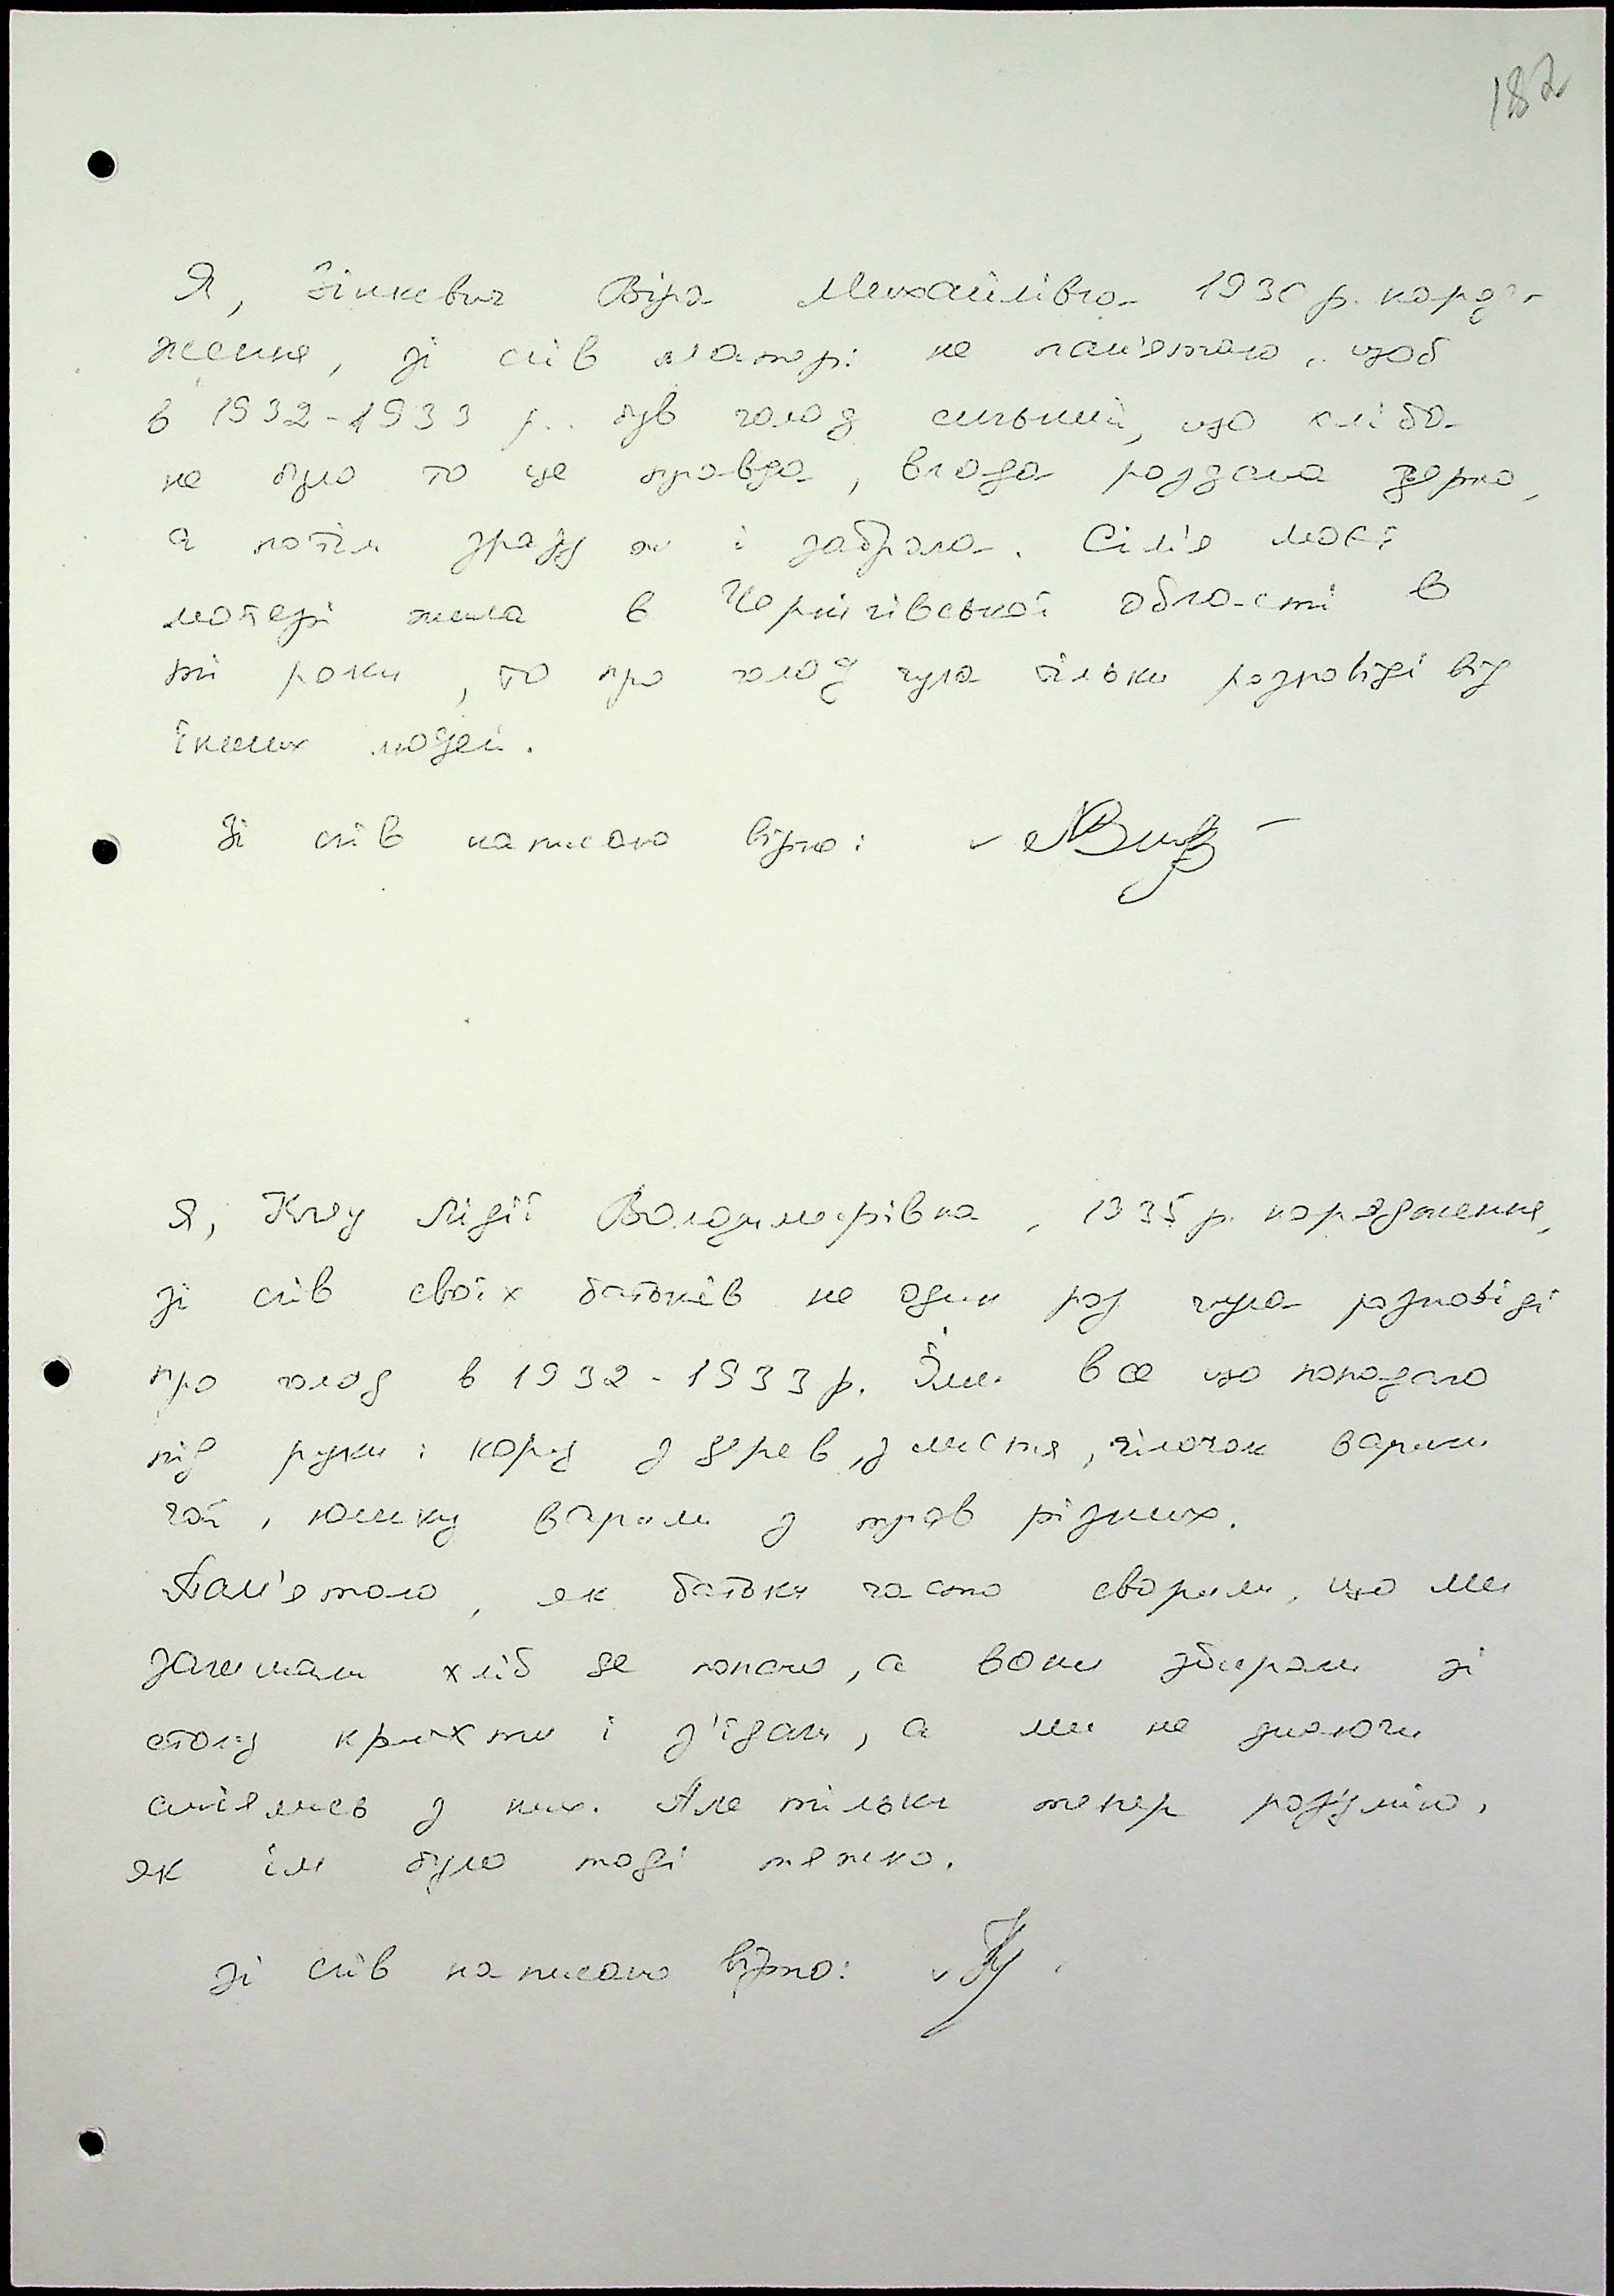 182
Я, Зінкевич Віра Михайлівна 1930 р. народ-
ження, зі слів матері не пам'ятаю, щоб
в 1932-1933 р. був голод сильний, що хліба
не було то це правда, влада роздала зерно,
а потім зразу ж і забрала. Сім'я моєї
матері жила в Чернігівської області в
ті роки, то про голод чула тільки розповіді від
інших людей.
Зі слів написано вірно:
Я, Лідії Володимирівна, 1935 р. народження,
зі слів своїх батьків не один раз чула розповіді
про голод в 1932-1933 р. Їли все що попадало
під руки: кору з дерев, з листя, гілочок варили
чай, юшку варили з трав різних.
Пам'ятаю, як батьки часто сварили, що ми
залишали хліб де попало, а вони збирали зі
столу крихти і з'їдали, а ми не знаючи
сміялись з них. Але тільки тепер розумію,
як їм було тоді тяжко.
Зі слів написано вірно: